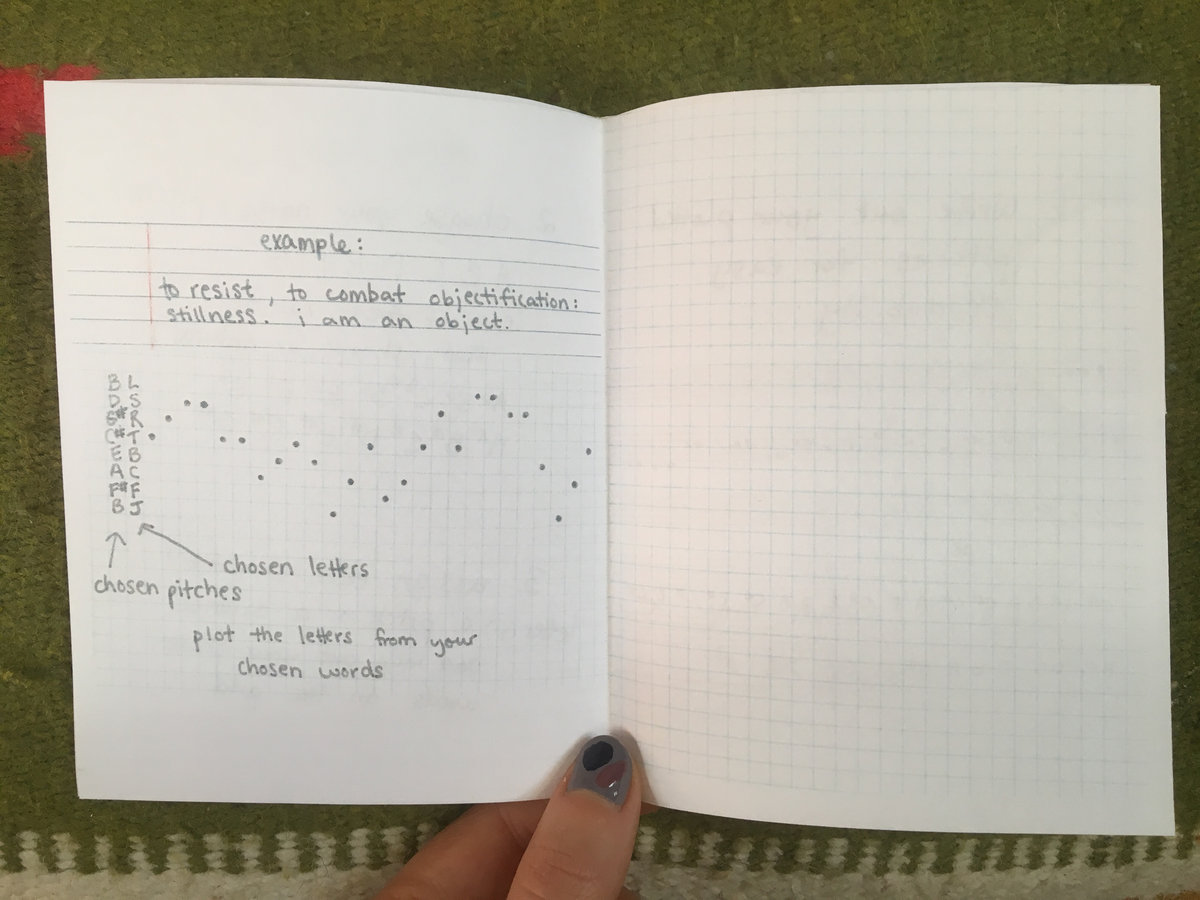 example:
to resist, to combat objectification:
stillness. i am an object.
B L
D S
G# R
C# T
E B
A C
F# F
B J
chosen letters
chosen pitches
plot the letters from your
chosen words